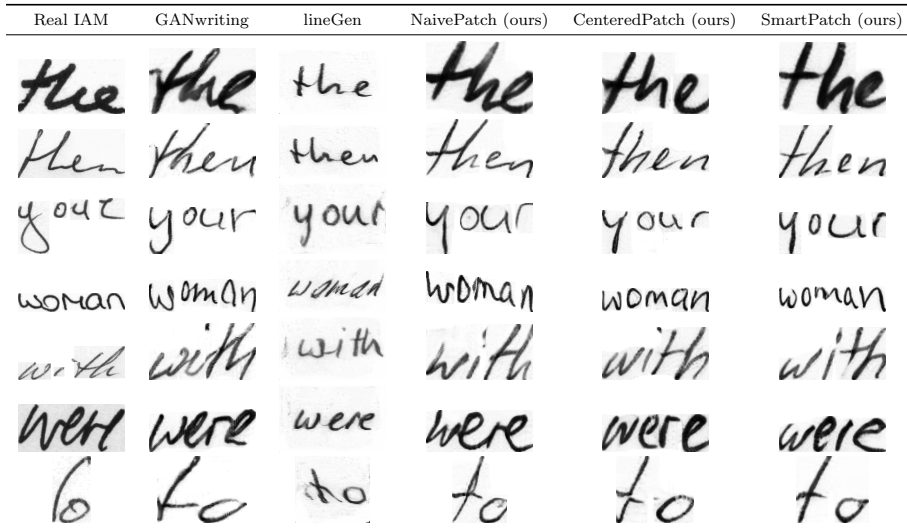 Real IAM GANwriting lineGen NaivePatch (ours) CenteredPatch (ours) SmartPatch (ours)
the the the the the the
then then then then then then
your your your your your your
woman woman woman woman woman woman
with with with with with with
were were were were were were
to to to to to to